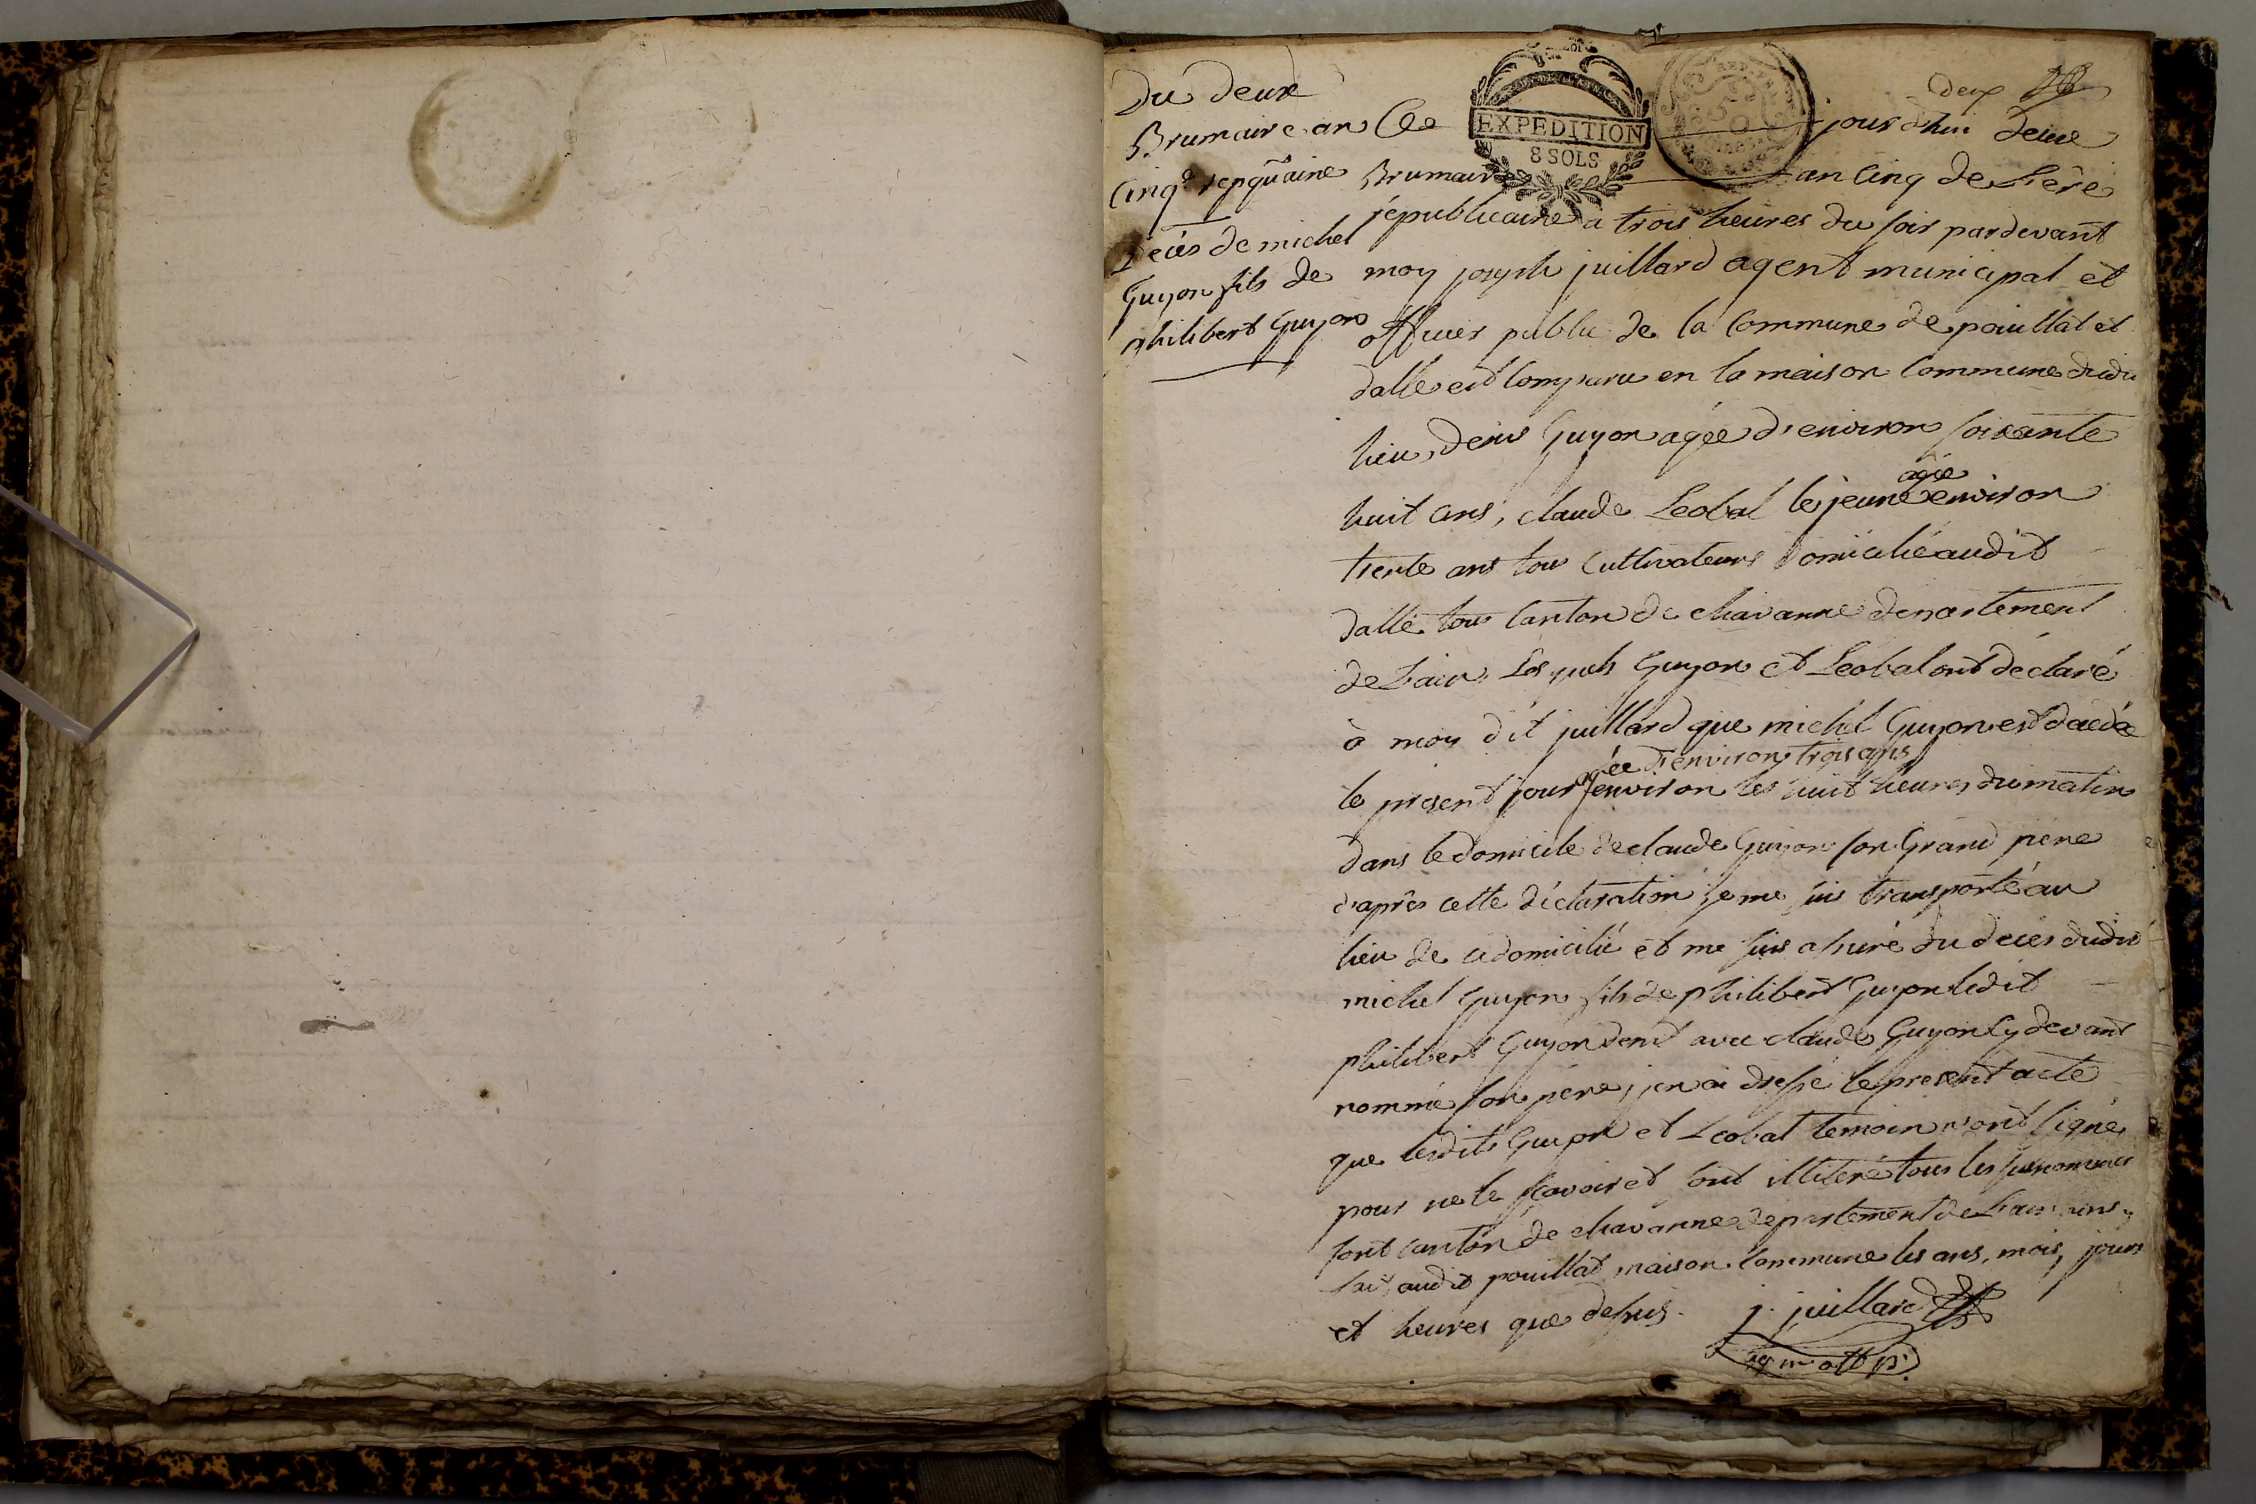 deux
Du deux
Brumaire an
Cinq.e repquaine
Décés de michel
Guyon fils de
philibert Guyon
EXPEDITION
8 SOLS
REP. FRA
Ce jourd'hui deux
Brumaire an Cinq de L'ère
républicaine a trois heures du soir pardevant
moy joseph juillard agent municipal et
officier public de la Commune de pouillat et
dalle est Comparu en la maison Commune dudit
lieu, denis Guyon agée d'environ soixante
huit ans, claude Leobal le jeune agée environ
trente ans tous Cultivateurs domicilié audit
dalle tous Canton de chavanne departement
de L'ain, Les quels Guyon et Leobal ont déclaré
à moy dit juillard que michel Guyon est décédé
le present jour agée d'environ trois ans environ les huit heures du matin
dans le domicile de claude Guyon son Grand père
d'après cette déclaration je me suis transporté au
lieu de ce domicilié et me suis assuré du décès dudit
michel Guyon fils de philibert Guyon ledit
philibert Guyon vent avec claude Guyon Cy devant
nommé son père, j'en ai dressé le present acte
que lesdits Guyon et Leobal temoin n'ont signé
pour ne le scavoir et sont illiteré tous les susnommés
sont Canton de chavanne departement de L'ain
fait audit pouillat maison Commune les ans, mois, jours
et heures que dessus. j. juillard
ag m off p.